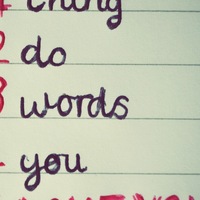 thing
2 do
3 words
you